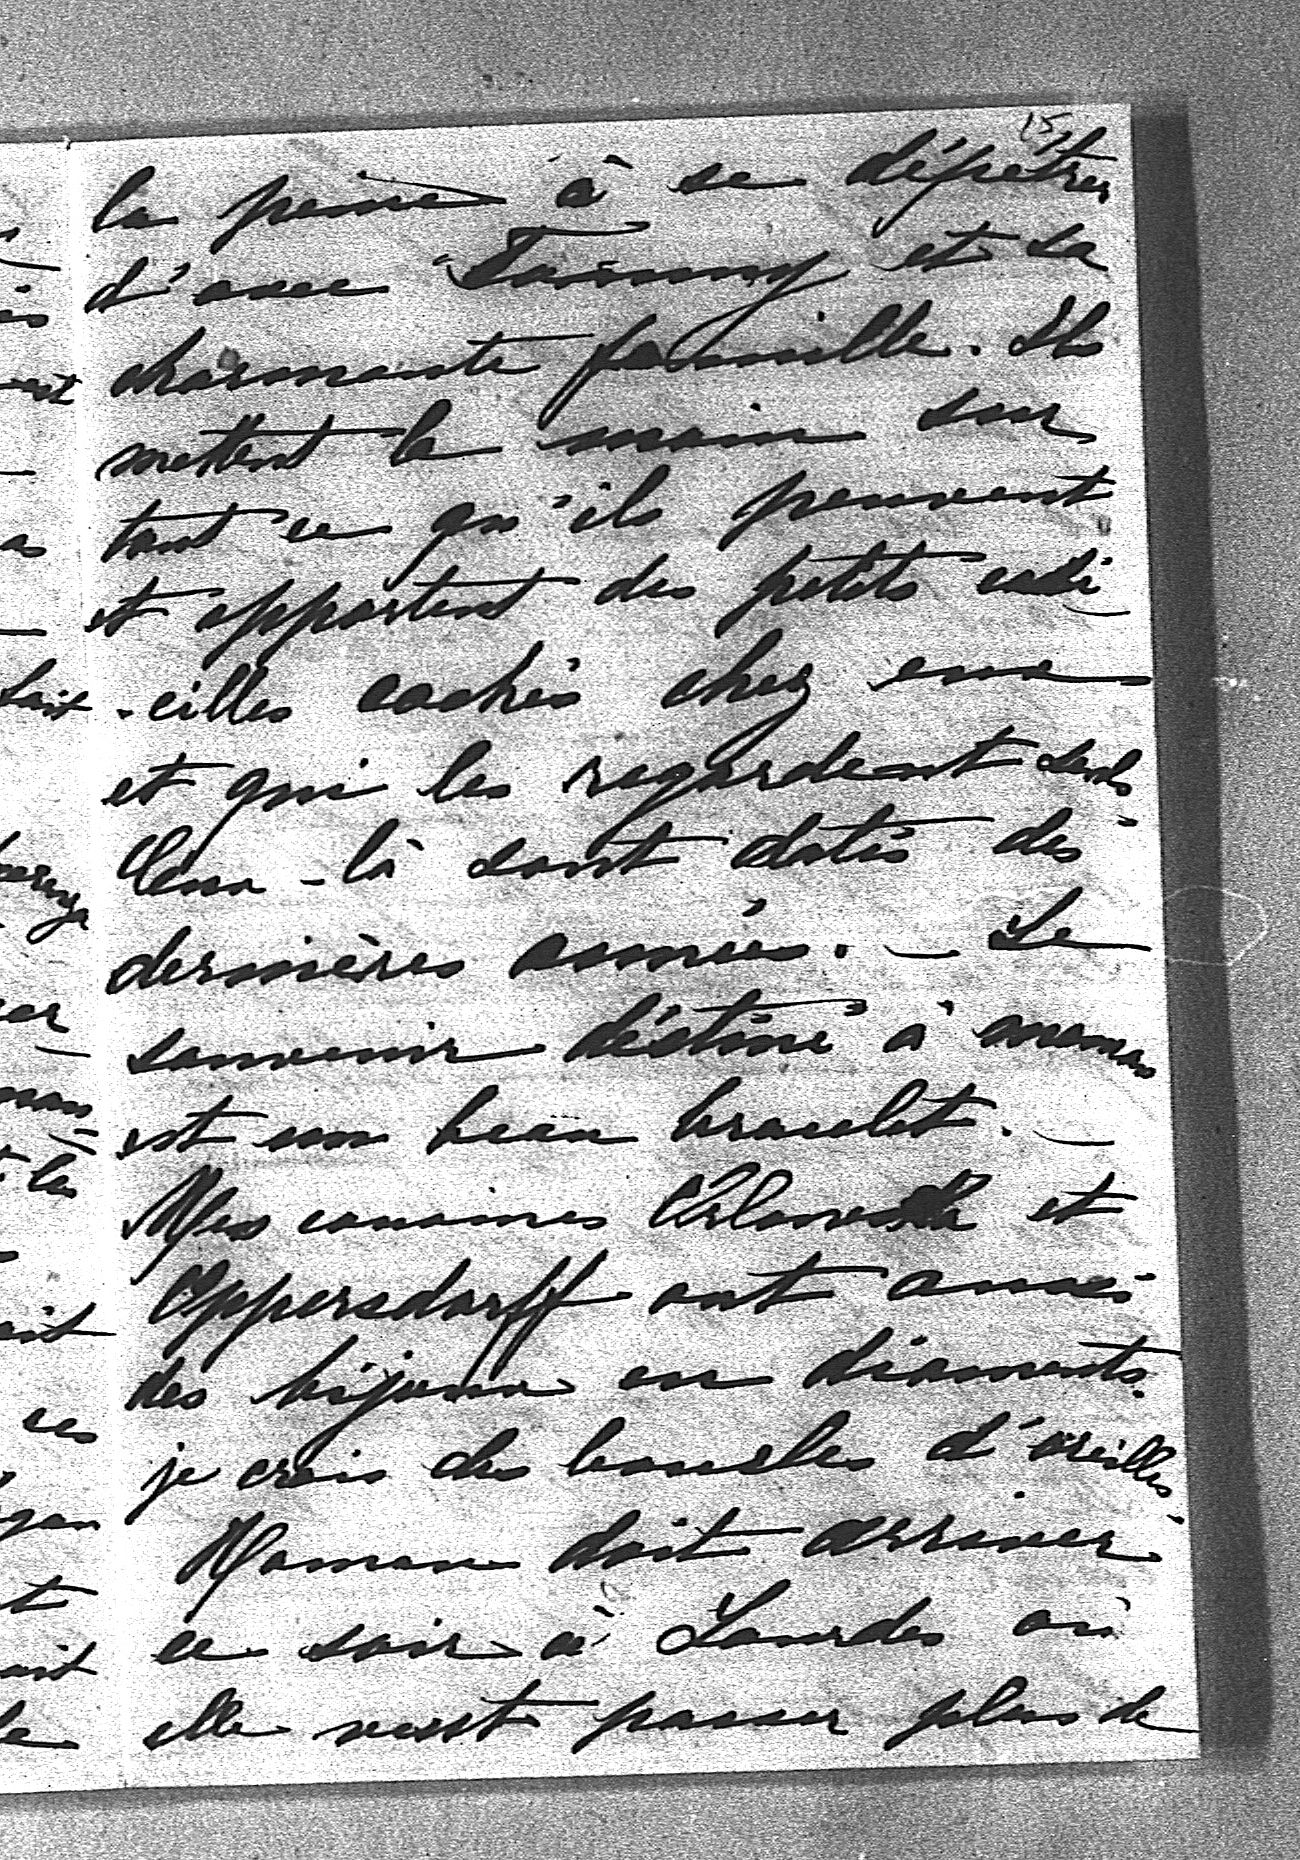 15
la peine à se dépêtrer
d'avec Fanny et sa
charmante famille. Ils
mettent la main sur
tout ce qu'ils peuvent
et apportent des petits codi
-cilles cachés chez eux
et qui les regardent seuls
Ceux-là sont datés des
dernières années. — Le
souvenir déstiné à maman
est un beau bracelet. —
Mes cousines et
Oppersdorff ont aussi
des bijoux en diamants.
je crois des boucles d'oreilles.
Maman doit arriver
ce soir à Lourdes où
elle veut passer plus de